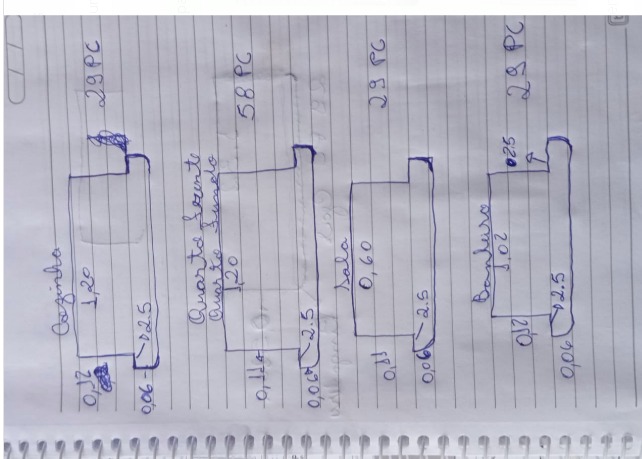 Cozinha
1,20
29 PC
0,12
0,06
2.5
Quarto Frente
Quarto Fundo
1,20
58 PC
0,11
0,06
2.5
Sala
0,60
29 PC
0,11
0,06
2.5
Banheiro
1,02
29 PC
025
0,12
0,06
2.5